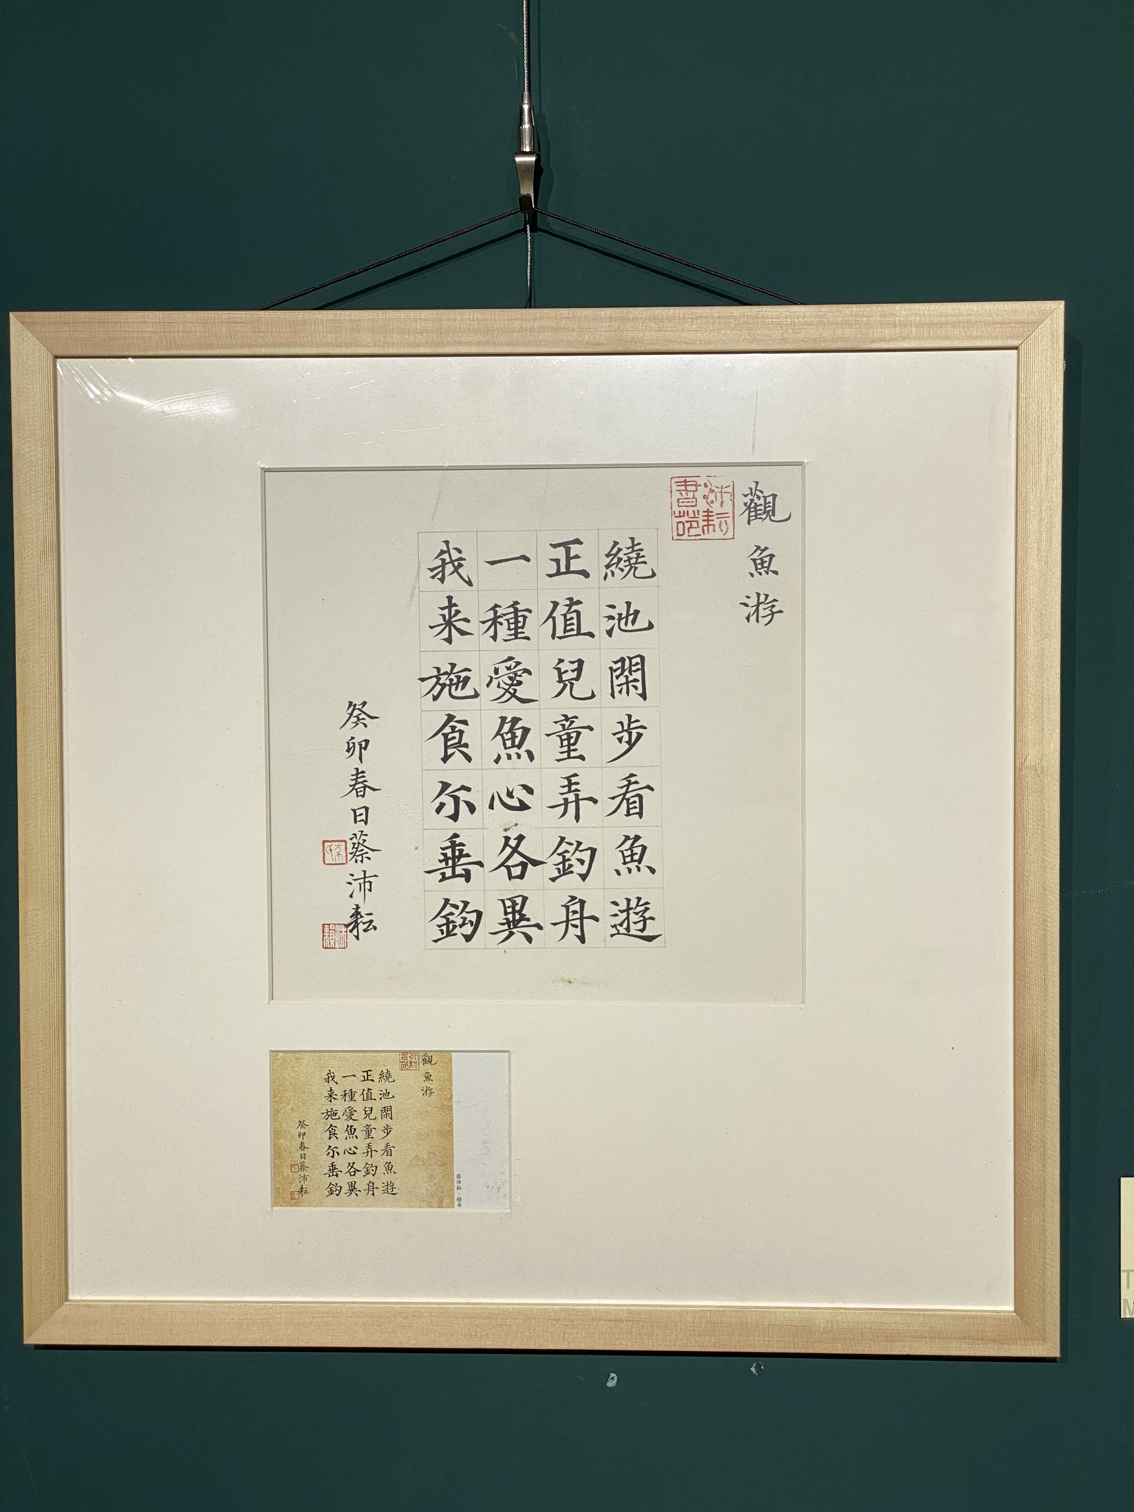 觀魚游
繞池閑步看魚遊
正值兒童弄釣舟
一種愛魚心各異
我来施食尔垂鈎
癸卯春日蔡沛耘
沛耘書苑
觀魚游
繞池閑步看魚遊
正值兒童弄釣舟
一種愛魚心各異
我来施食尔垂鈎
癸卯春日蔡沛耘
蔡沛耘·楷书
T
M